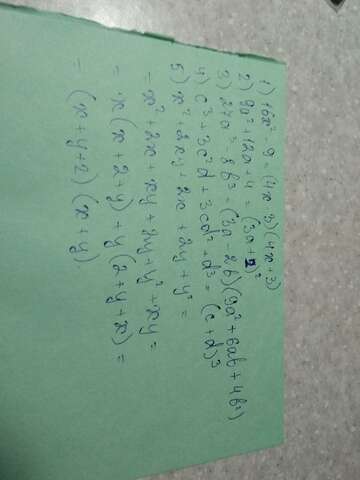 1) 16x² - 9 = (4x - 3)(4x + 3)
2) 9a² + 12a + 4 = (3a + 2)²
3) 27a³ - 8b³ = (3a - 2b)(9a² + 6ab + 4b²)
4) c³ + 3c²d + 3cd² + d³ = (c + d)³
5) x² + 2xy + 2x + 2y + y² =
= x² + 2x + xy + 2y + y² + xy =
= x(x + 2 + y) + y(2 + y + x) =
= (x + y + 2)(x + y).